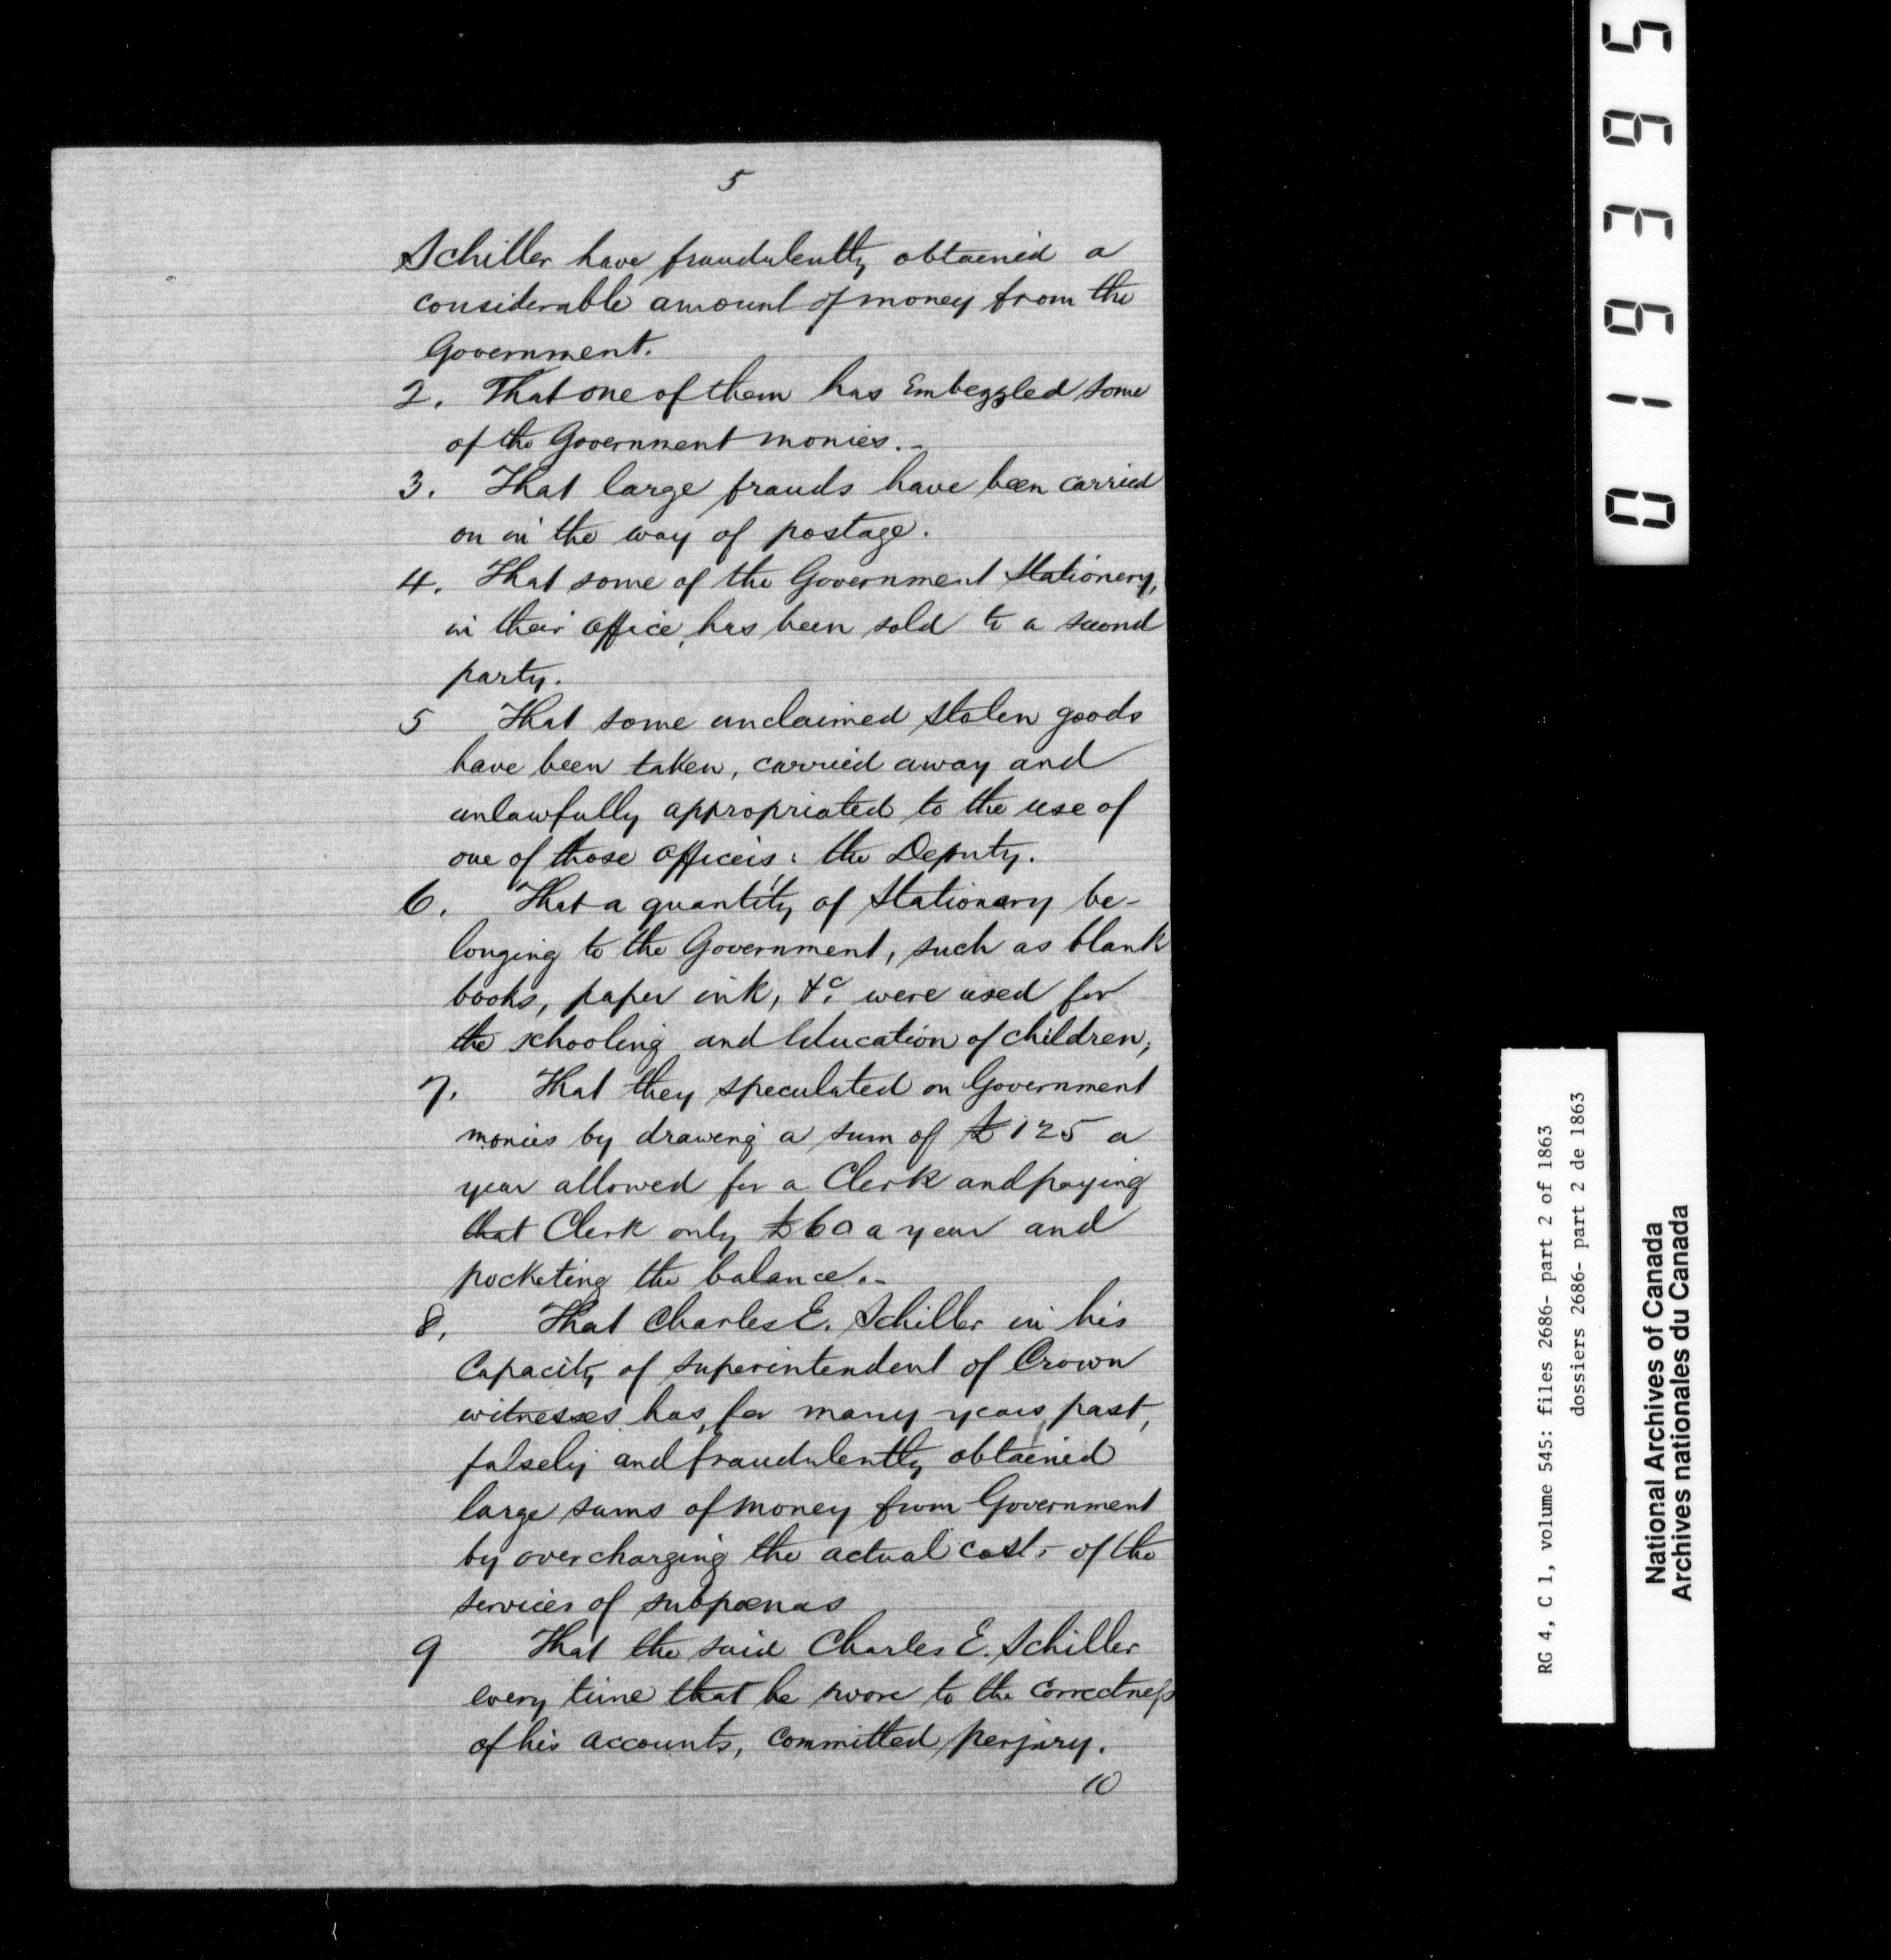 5
Schiller have fraudulently obtained a
considerable amount of money from the
Government.
2. That one of them has Embezzled some
of the Government monies.-
3. That large frauds have been carried
on in the way of postage.
4. That some of the Government Stationery,
in their office, has been sold to a second
party.
5 That some unclaimed stolen goods
have been taken, carried away and
unlawfully appropriated to the use of
one of those officers: the Deputy.
6. That a quantity of Stationary be-
longing to the Government, such as blank
books, paper ink, &c. were used for
the schooling and Education of children;
7. That they speculated on Government
monies by drawing a sum of £125 a
year allowed for a Clerk and paying
that Clerk only £60 a year and
pocketing the balance.-
8. That Charles E. Schiller in his
Capacity of superintendent of Crown
witnesses has, for many years past,
falsely and fraudulently obtained
large sums of money from Government
by overcharging the actual cost - of the
services of subpœnas
9 That the said Charles E. Schiller
every time that he swore to the correctness
of his accounts, committed perjury.
10
019395
RG 4, C 1, volume 545: files 2686- part 2 of 1863
dossiers 2686- part 2 de 1863
National Archives of Canada
Archives nationales du Canada